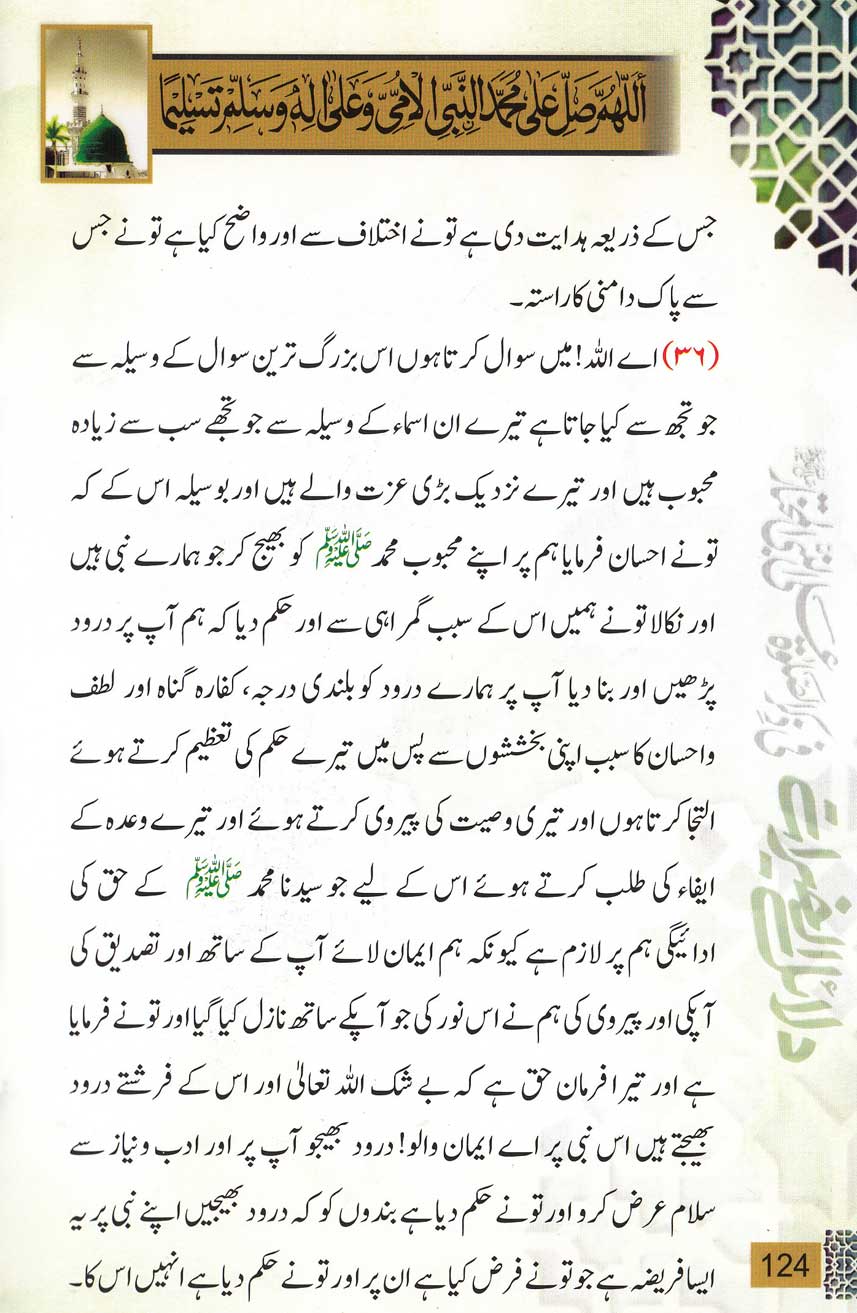 أَللّٰهُمَّ صَلِّ عَلٰى مُحَمَّدِ النَّبِيِّ الْاُمِّيِّ وَعَلٰى اٰلِهٖ وَسَلِّمْ تَسْلِيْمًا
جس کے ذریعہ ہدایت دی ہے تونے اختلاف سے اور واضح کیا ہے تونے جس
سے پاک دامنی کا راستہ۔
(۳۶) اے اللہ! میں سوال کرتا ہوں اس بزرگ ترین سوال کے وسیلہ سے
جو تجھ سے کیا جاتا ہے تیرے ان اسماء کے وسیلہ سے جو تجھے سب سے زیادہ
محبوب ہیں اور تیرے نزدیک بڑی عزت والے ہیں اور بوسیلہ اس کے کہ
تونے احسان فرمایا ہم پر اپنے محبوب محمد ﷺ کو بھیج کر جو ہمارے نبی ہیں
اور نکالا تونے ہمیں اس کے سبب گمراہی سے اور حکم دیا کہ ہم آپ پر درود
پڑھیں اور بنا دیا آپ پر ہمارے درود کو بلندی درجہ، کفارہ گناہ اور لطف
واحسان کا سبب اپنی بخششوں سے پس میں تیرے حکم کی تعظیم کرتے ہوئے
التجا کرتا ہوں اور تیری وصیت کی پیروی کرتے ہوئے اور تیرے وعدہ کے
ایفاء کی طلب کرتے ہوئے اس کے لیے جو سیدنا محمد ﷺ کے حق کی
ادائیگی ہم پر لازم ہے کیونکہ ہم ایمان لائے آپ کے ساتھ اور تصدیق کی
آپکی اور پیروی کی ہم نے اس نور کی جو آپکے ساتھ نازل کیا گیا اور تونے فرمایا
ہے اور تیرا فرمان حق ہے کہ بے شک اللہ تعالیٰ اور اس کے فرشتے درود
بھیجتے ہیں اس نبی پر اے ایمان والو! درود بھیجو آپ پر اور ادب ونیاز سے
سلام عرض کرو اور تونے حکم دیا ہے بندوں کو کہ درود بھیجیں اپنے نبی پر یہ
ایسا فریضہ ہے جو تونے فرض کیا ہے ان پر اور تونے حکم دیا ہے انہیں اس کا۔
دلائل الخیرات
124